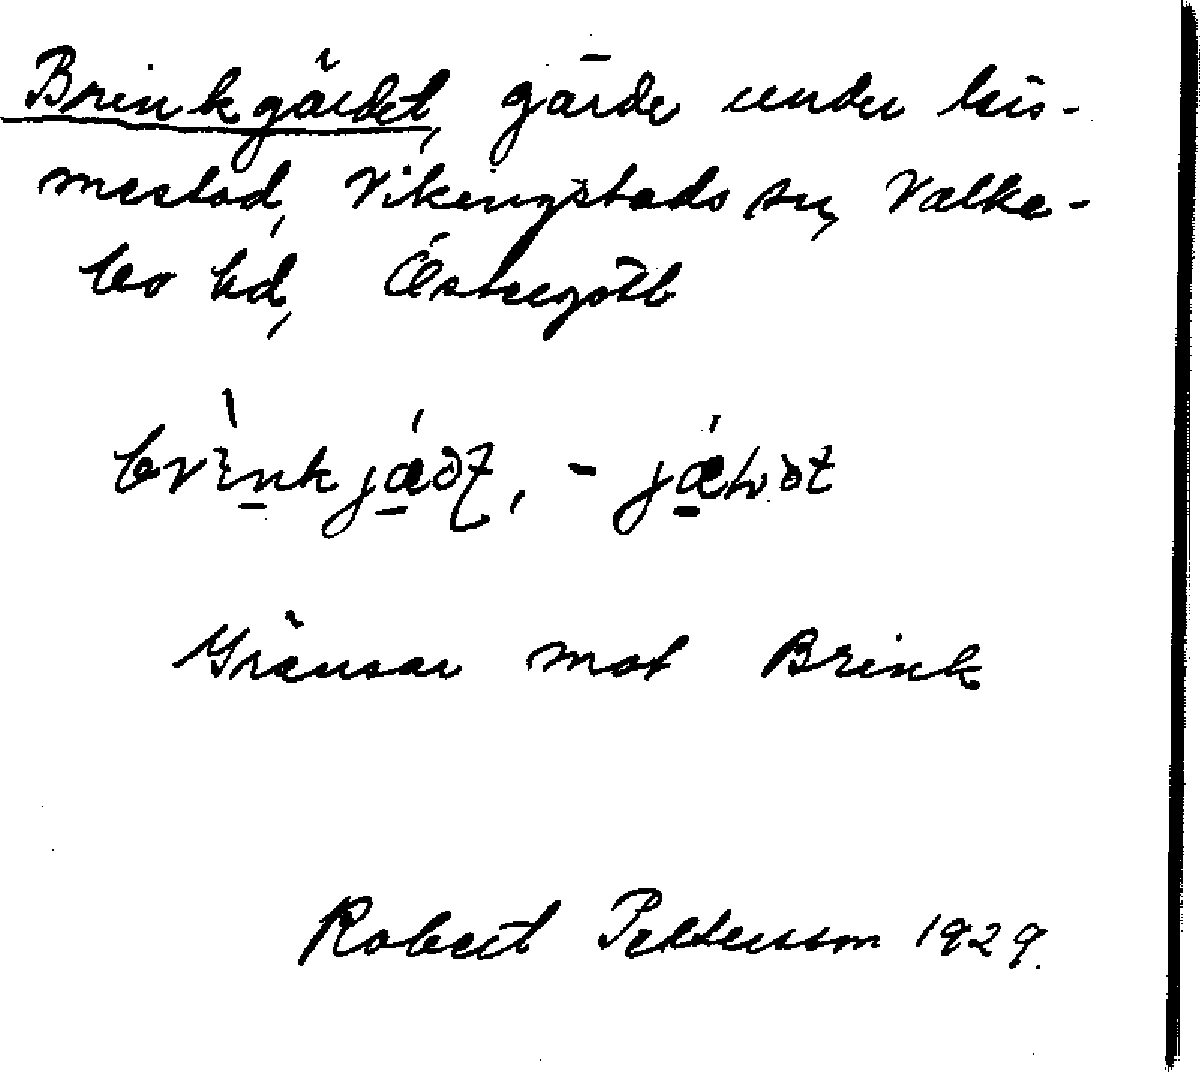 Brinkgärdet, gärde under Lis-
mestad, Vikingstads sn, Valke-
bo hd, Östergötl
Gränsar mot Brink
Robert Pettersson 1929.